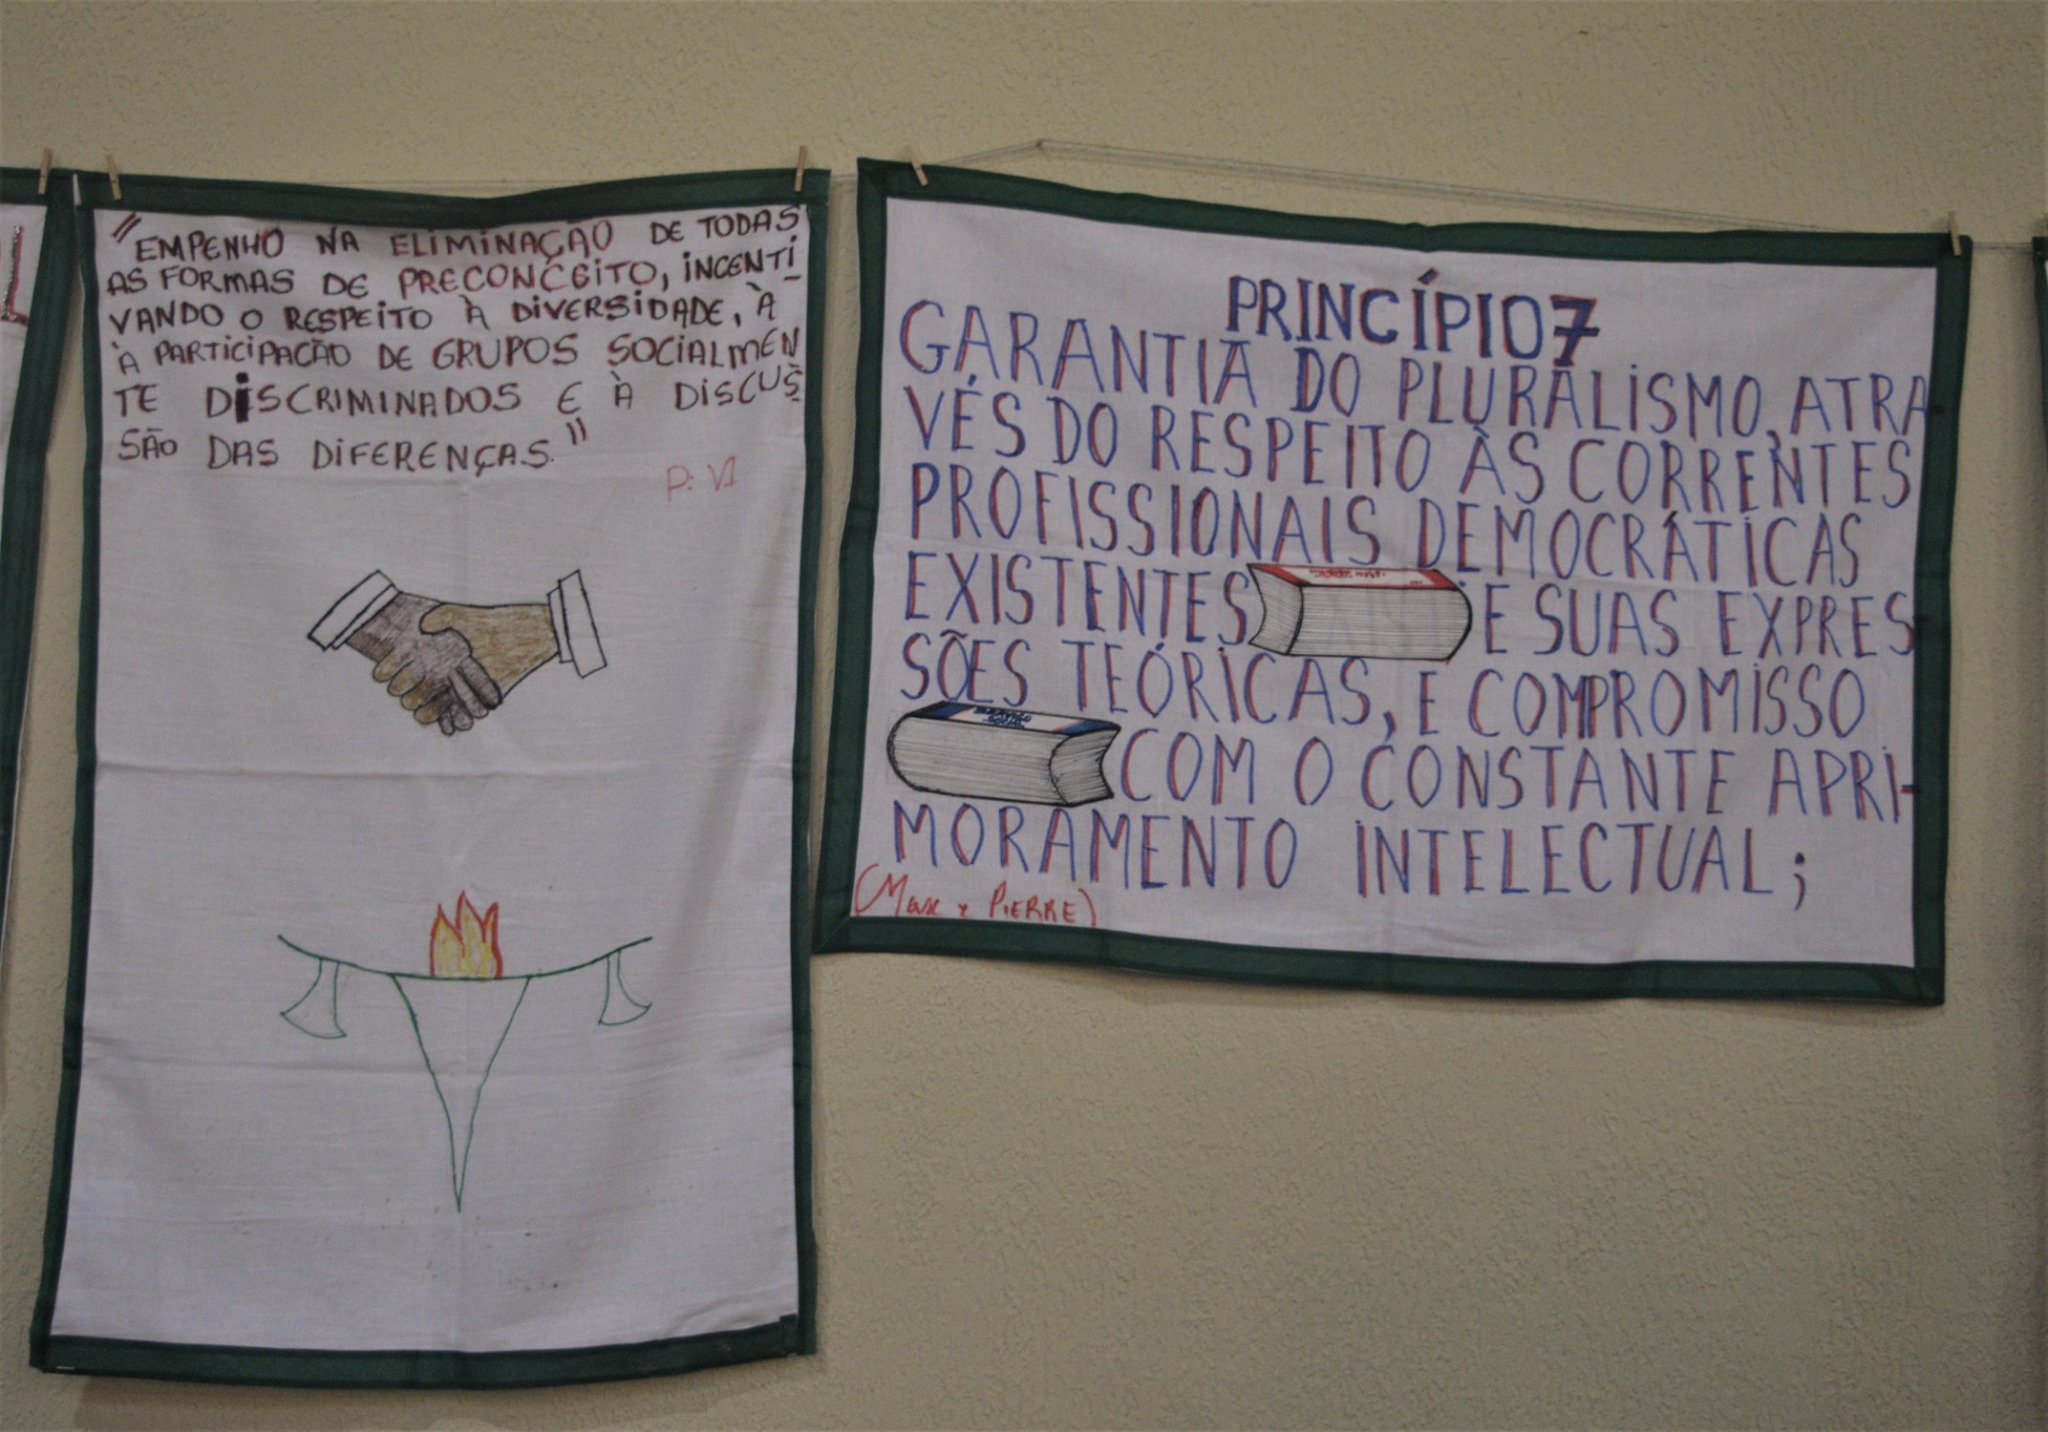 "EMPENHO NA ELIMINAÇÃO DE TODAS
AS FORMAS DE PRECONCEITO, INCENTI-
VANDO O RESPEITO À DIVERSIDADE, À
À PARTICIPAÇÃO DE GRUPOS SOCIALMEN
TE DISCRIMINADOS E À DISCUS-
SÃO DAS DIFERENÇAS."
P: VI
PRINCÍPIO 7
GARANTIA DO PLURALISMO, ATRA
VÉS DO RESPEITO ÀS CORRENTES
PROFISSIONAIS DEMOCRÁTICAS
EXISTENTES E SUAS EXPRES
SÕES TEÓRICAS, E COMPROMISSO
SERVIÇO
SOCIAL
COM O CONSTANTE APRI-
MORAMENTO INTELECTUAL;
PIERRE)